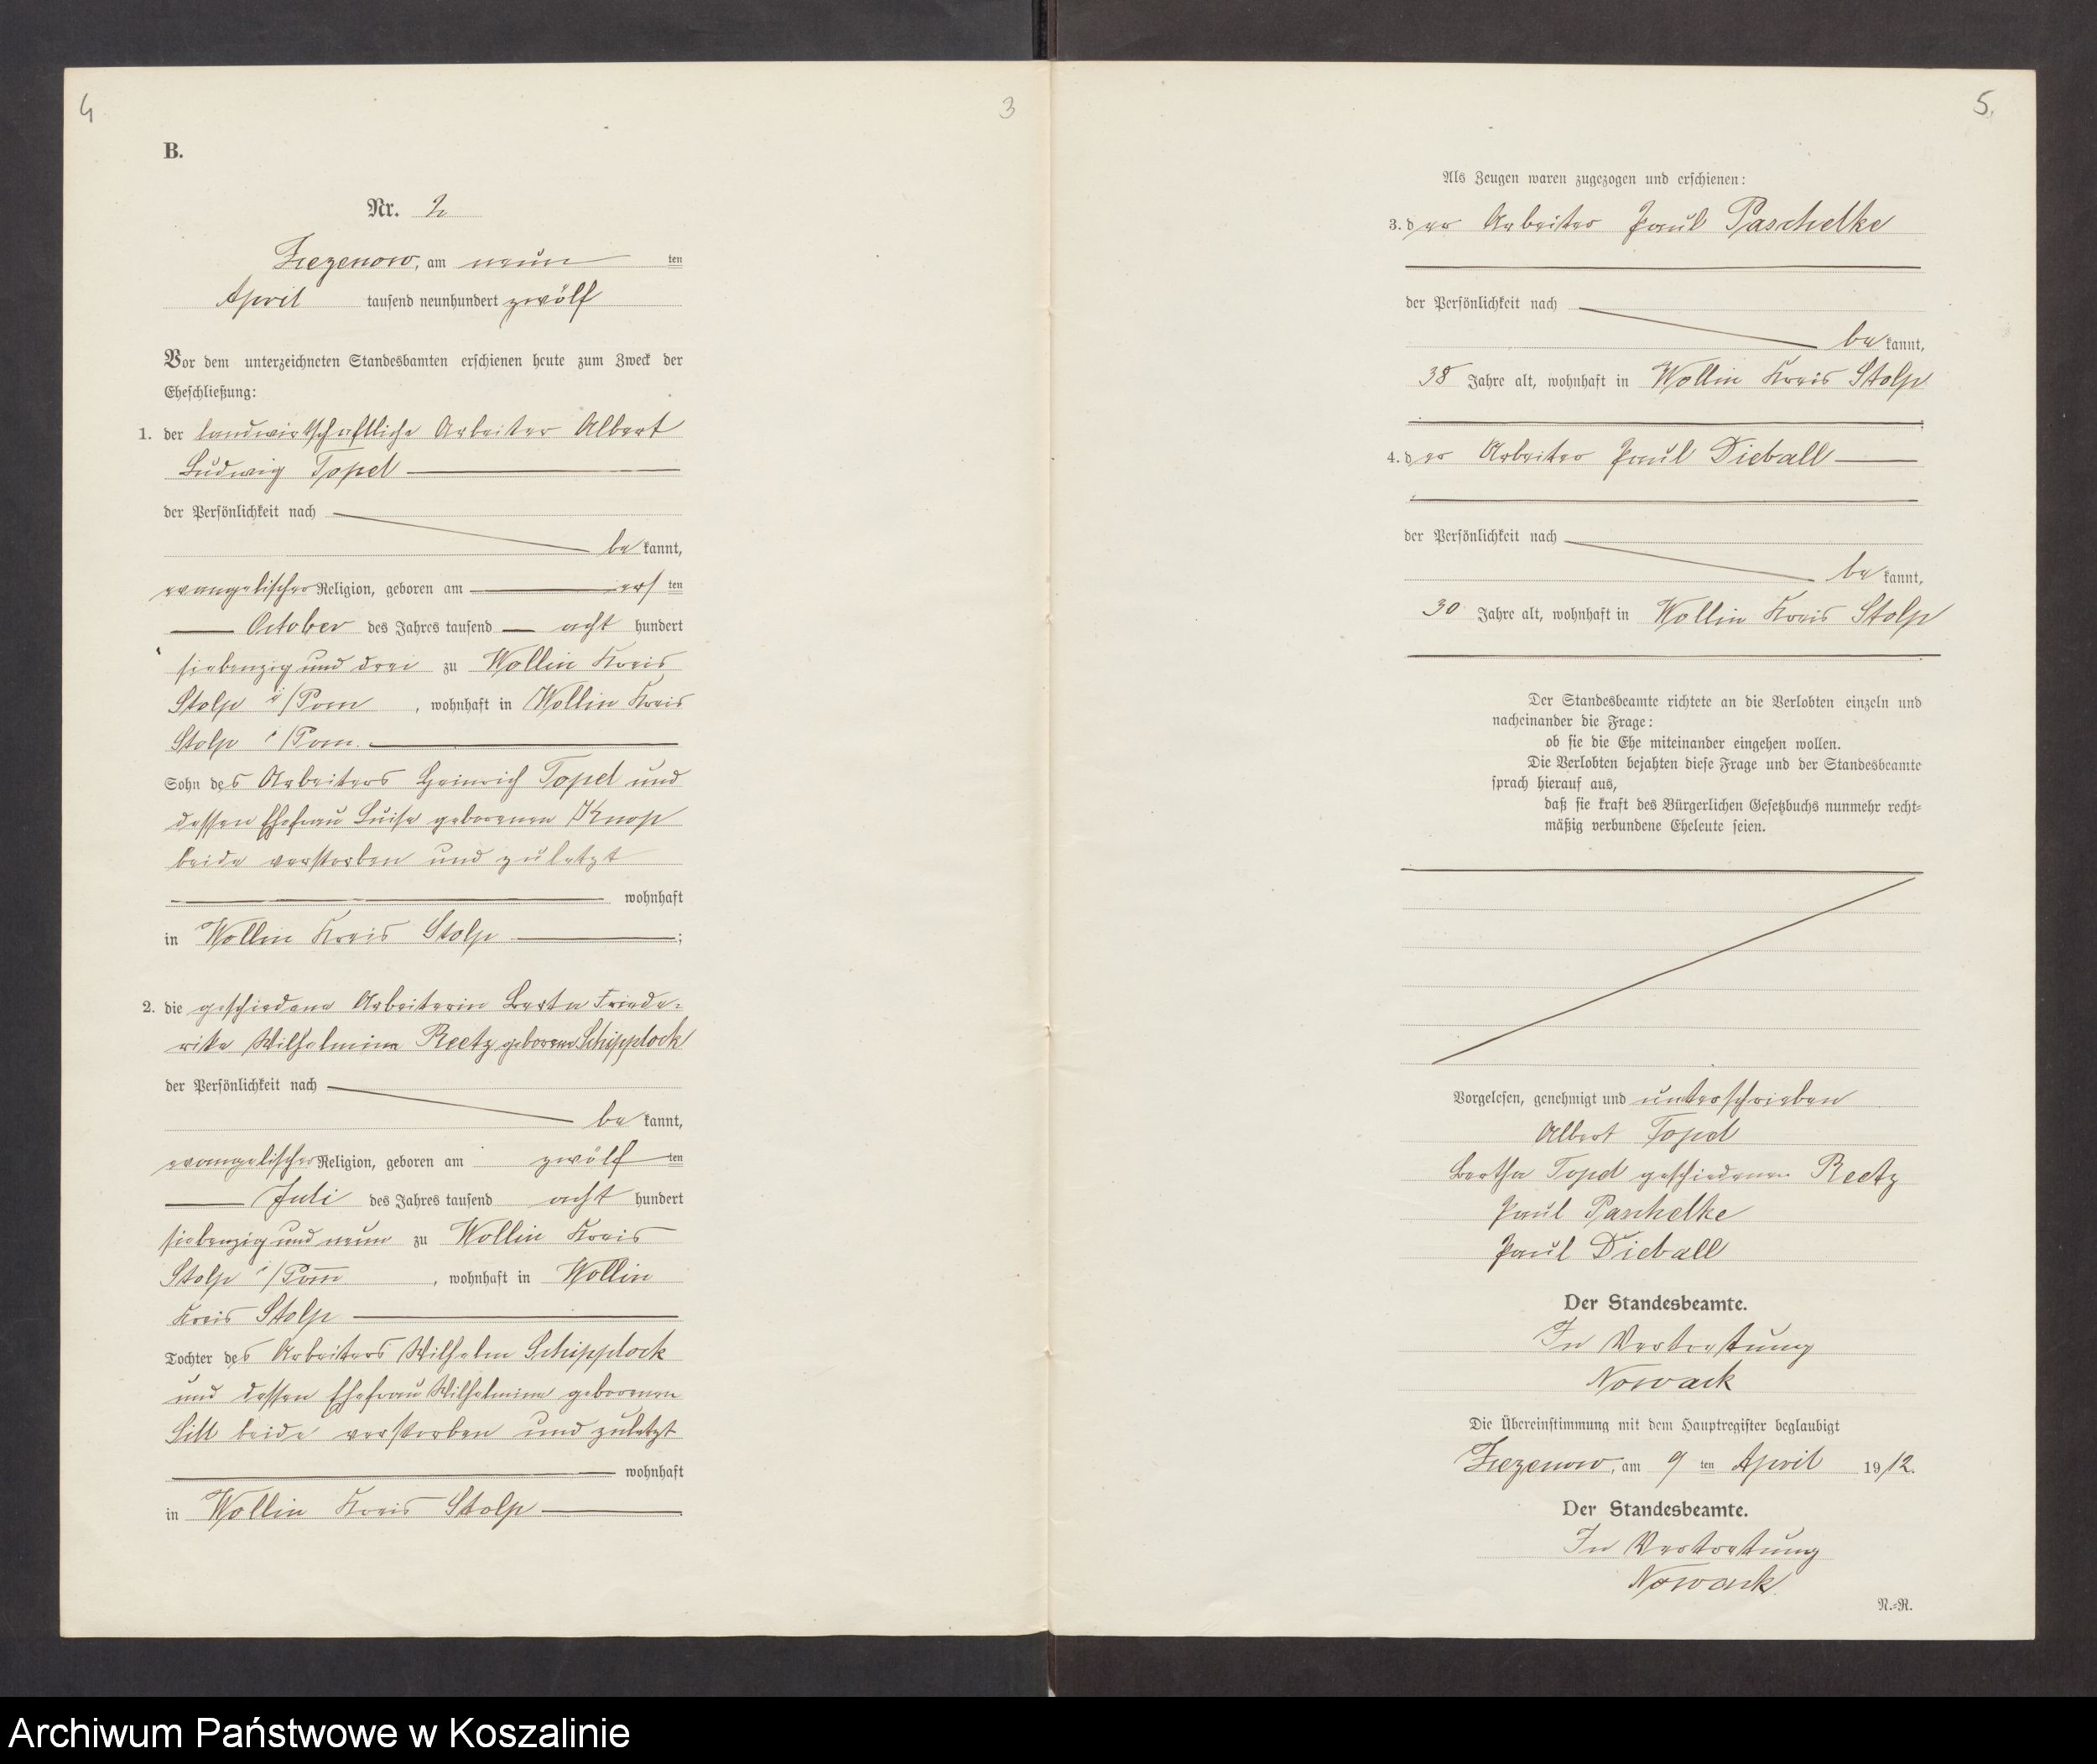 4
3
B.
Nr. 2
Zezenow, am neun ten
April tausend neunhundert zwölf
Vor dem unterzeichneten Standesbamten erschienen heute zum Zweck der
Eheschließung:
1. der landwirtschaftliche Arbeiter Albert
Ludwig Topel
der Persönlichkeit nach
be kannt,
evangelischer Religion, geboren am ers ten
October des Jahres tausend acht hundert
siebenzig und drei zu Wollin Kreis
Stolp i/Pom , wohnhaft in Wollin Kreis
Stolp i/Pom.
Sohn des Arbeiters Heinrich Topel und
dessen Ehefrau Luise geborenen Knop
beide verstorben und zuletzt
wohnhaft
in Wollin Kreis Stolp ;
2. die geschiedene Arbeiterin Berta Friede-
rike Wilhelmine Reetz geborene Schipplock
der Persönlichkeit nach
be kannt,
evangelischer Religion, geboren am zwölf ten
Juli des Jahres tausend acht hundert
siebenzig und neun zu Wollin Kreis
Stolp i/Pom , wohnhaft in Wollin
Kreis Stolp
Tochter des Arbeiters Wilhelm Schipplock
und dessen Ehefrau Wilhelmine geborenen
beide verstorben und zuletzt
wohnhaft
in Wollin Kreis Stolp
5.
Als Zeugen waren zugezogen und erschienen:
3. der Arbeiter Paul Paschelke
der Persönlichkeit nach
be kannt,
38 Jahre alt, wohnhaft in Wollin Kreis Stolp
4. der Arbeiter Paul Dieball
der Persönlichkeit nach
be kannt,
30 Jahre alt, wohnhaft in Wollin Kreis Stolp
Der Standesbeamte richtete an die Verlobten einzeln und
nacheinander die Frage:
ob sie die Ehe miteinander eingehen wollen.
Die Verlobten bejahten diese Frage und der Standesbeamte
sprach hierauf aus,
daß sie kraft des Bürgerlichen Gesetzbuchs nunmehr recht-
mäßig verbundene Eheleute seien.
Vorgelesen, genehmigt und unterschrieben
Albert Topel
Bertha Topel geschiedene Reetz
Paul Paschelke
Paul Dieball
Der Standesbeamte.
In Vertretung
Nowack
Die Übereinstimmung mit dem Hauptregister beglaubigt
Zezenow, am 9 ten April 1912.
Der Standesbeamte.
In Vertretung
Nowack.
N.-R.
Archiwum Państwowe w Koszalinie